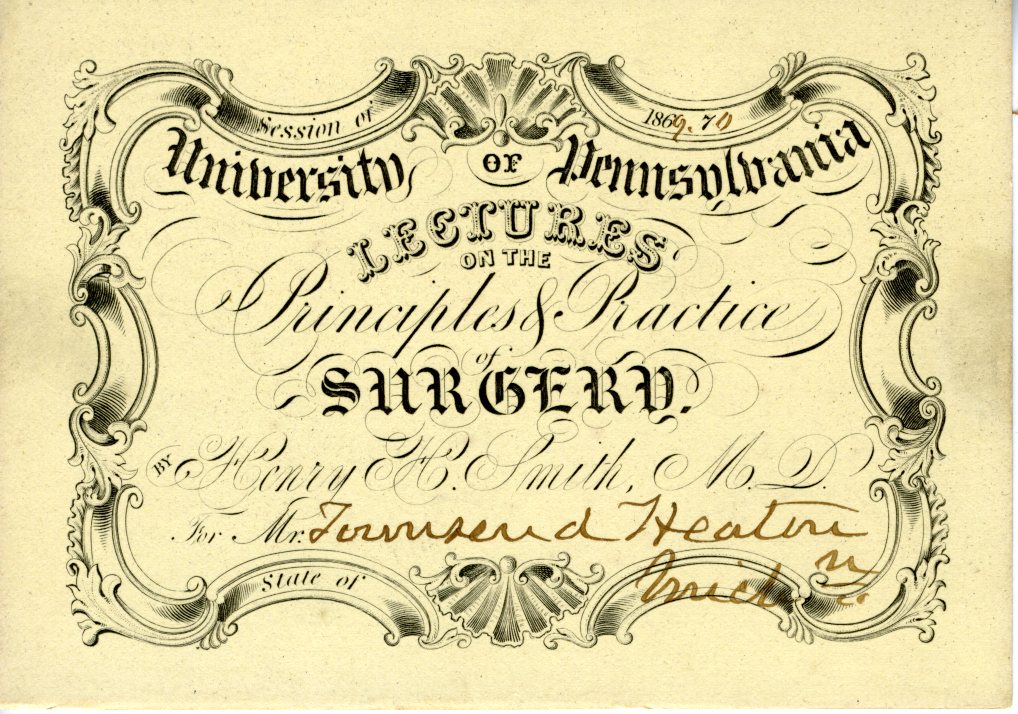 Session of 1869.70
University OF Pennsylvania
LECTURES
ON THE
Principles & Practice
of
SURGERY.
BY Henry H. Smith, M.D.
For Mr. Townsend Heaton
State of Mich